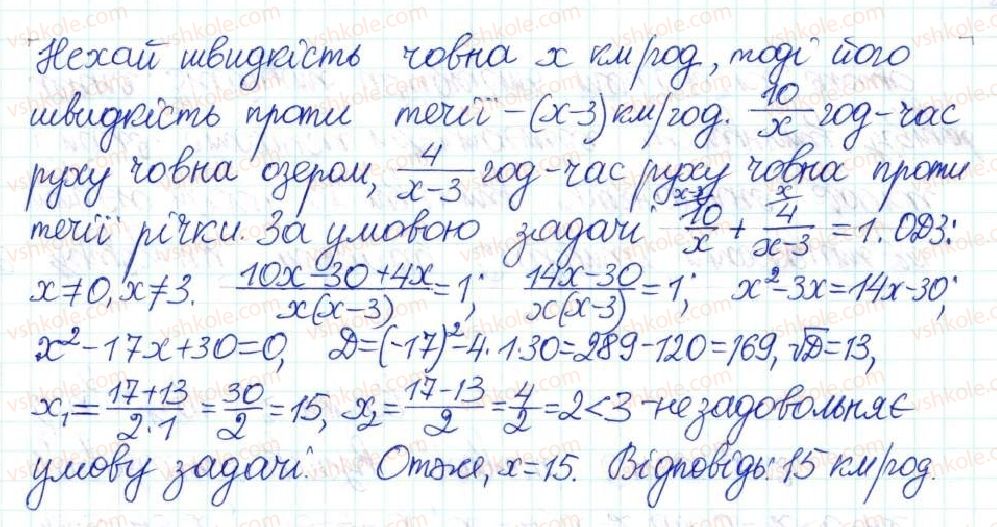 Нехай швидкість човна x км/год, тоді його
швидкість проти течії – (x-3) км/год. 10/x год – час
руху човна озером, 4/(x-3) год – час руху човна проти
течії річки. За умовою задачі (x-3 10/x + (x 4/(x-3) = 1. ОДЗ:
x≠0, x≠3. (10x-30+4x)/(x(x-3)) = 1; (14x-30)/(x(x-3)) = 1; x²-3x=14x-30;
x²-17x+30=0, D=(-17)²-4·1·30=289-120=169, √D=13,
x₁=(17+13)/(2·1)=30/2=15, x₂=(17-13)/2=4/2=2<3 – не задовольняє
умову задачі. Отже, x=15. Відповідь: 15 км/год.